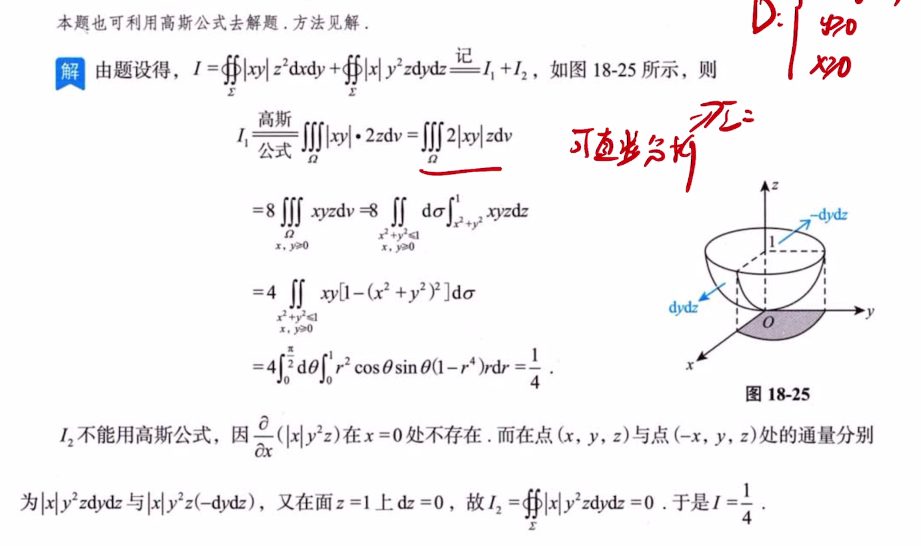 本题也可利用高斯公式去解题.方法见解.
D:{ y≥0
x≥0
解 由题设得，I=∯_Σ|xy|z²dxdy+∯_Σ|x|y²zdydz ≝(记) I₁+I₂，如图18-25所示，则
I₁ ≝(高斯公式) ∭_Ω|xy|•2zdv=∭_Ω 2|xy|zdv
可直接分析
=8∭_{Ω x,y≥0} xyzdv=8∬_{x²+y²≤1 x,y≥0} dσ∫_{x²+y²}^{1} xyzdz
=4∬_{x²+y²≤1 x,y≥0} xy[1-(x²+y²)²]dσ
=4∫_0^{π/2}dθ∫_0^1 r²cosθsinθ(1-r⁴)rdr=1/4.
z
-dydz
1
dydz
O
y
x
图 18-25
I₂不能用高斯公式，因∂/∂x(|x|y²z)在x=0处不存在.而在点(x, y, z)与点(-x, y, z)处的通量分别
为|x|y²zdydz与|x|y²z(-dydz)，又在面z=1上dz=0，故I₂=∯_Σ|x|y²zdydz=0.于是I=1/4.